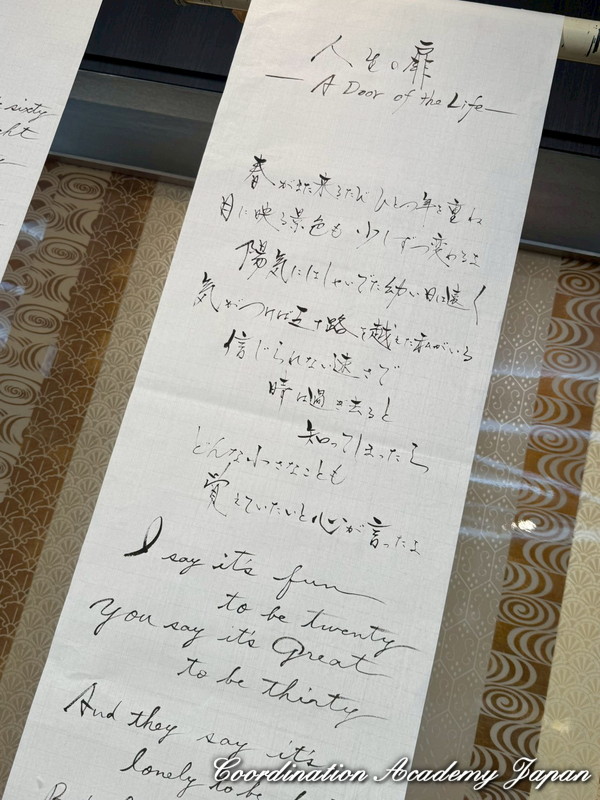 sixty
人生の扉
—A Door of the Life—
春がまた来るたび ひとつ年を重ね
目に映る景色も 少しずつ変わるよ
陽気にはしゃいでた幼い日は遠く
気がつけば五十路を越えた私がいる
信じられない速さで
時は過ぎ去ると
知ってしまったら
どんな小さなことも
覚えていたいと心が言ったよ
I say it's fun
to be twenty
You say it's great
to be thirty
And they say it's
lonely to be
Coordination Academy Japan